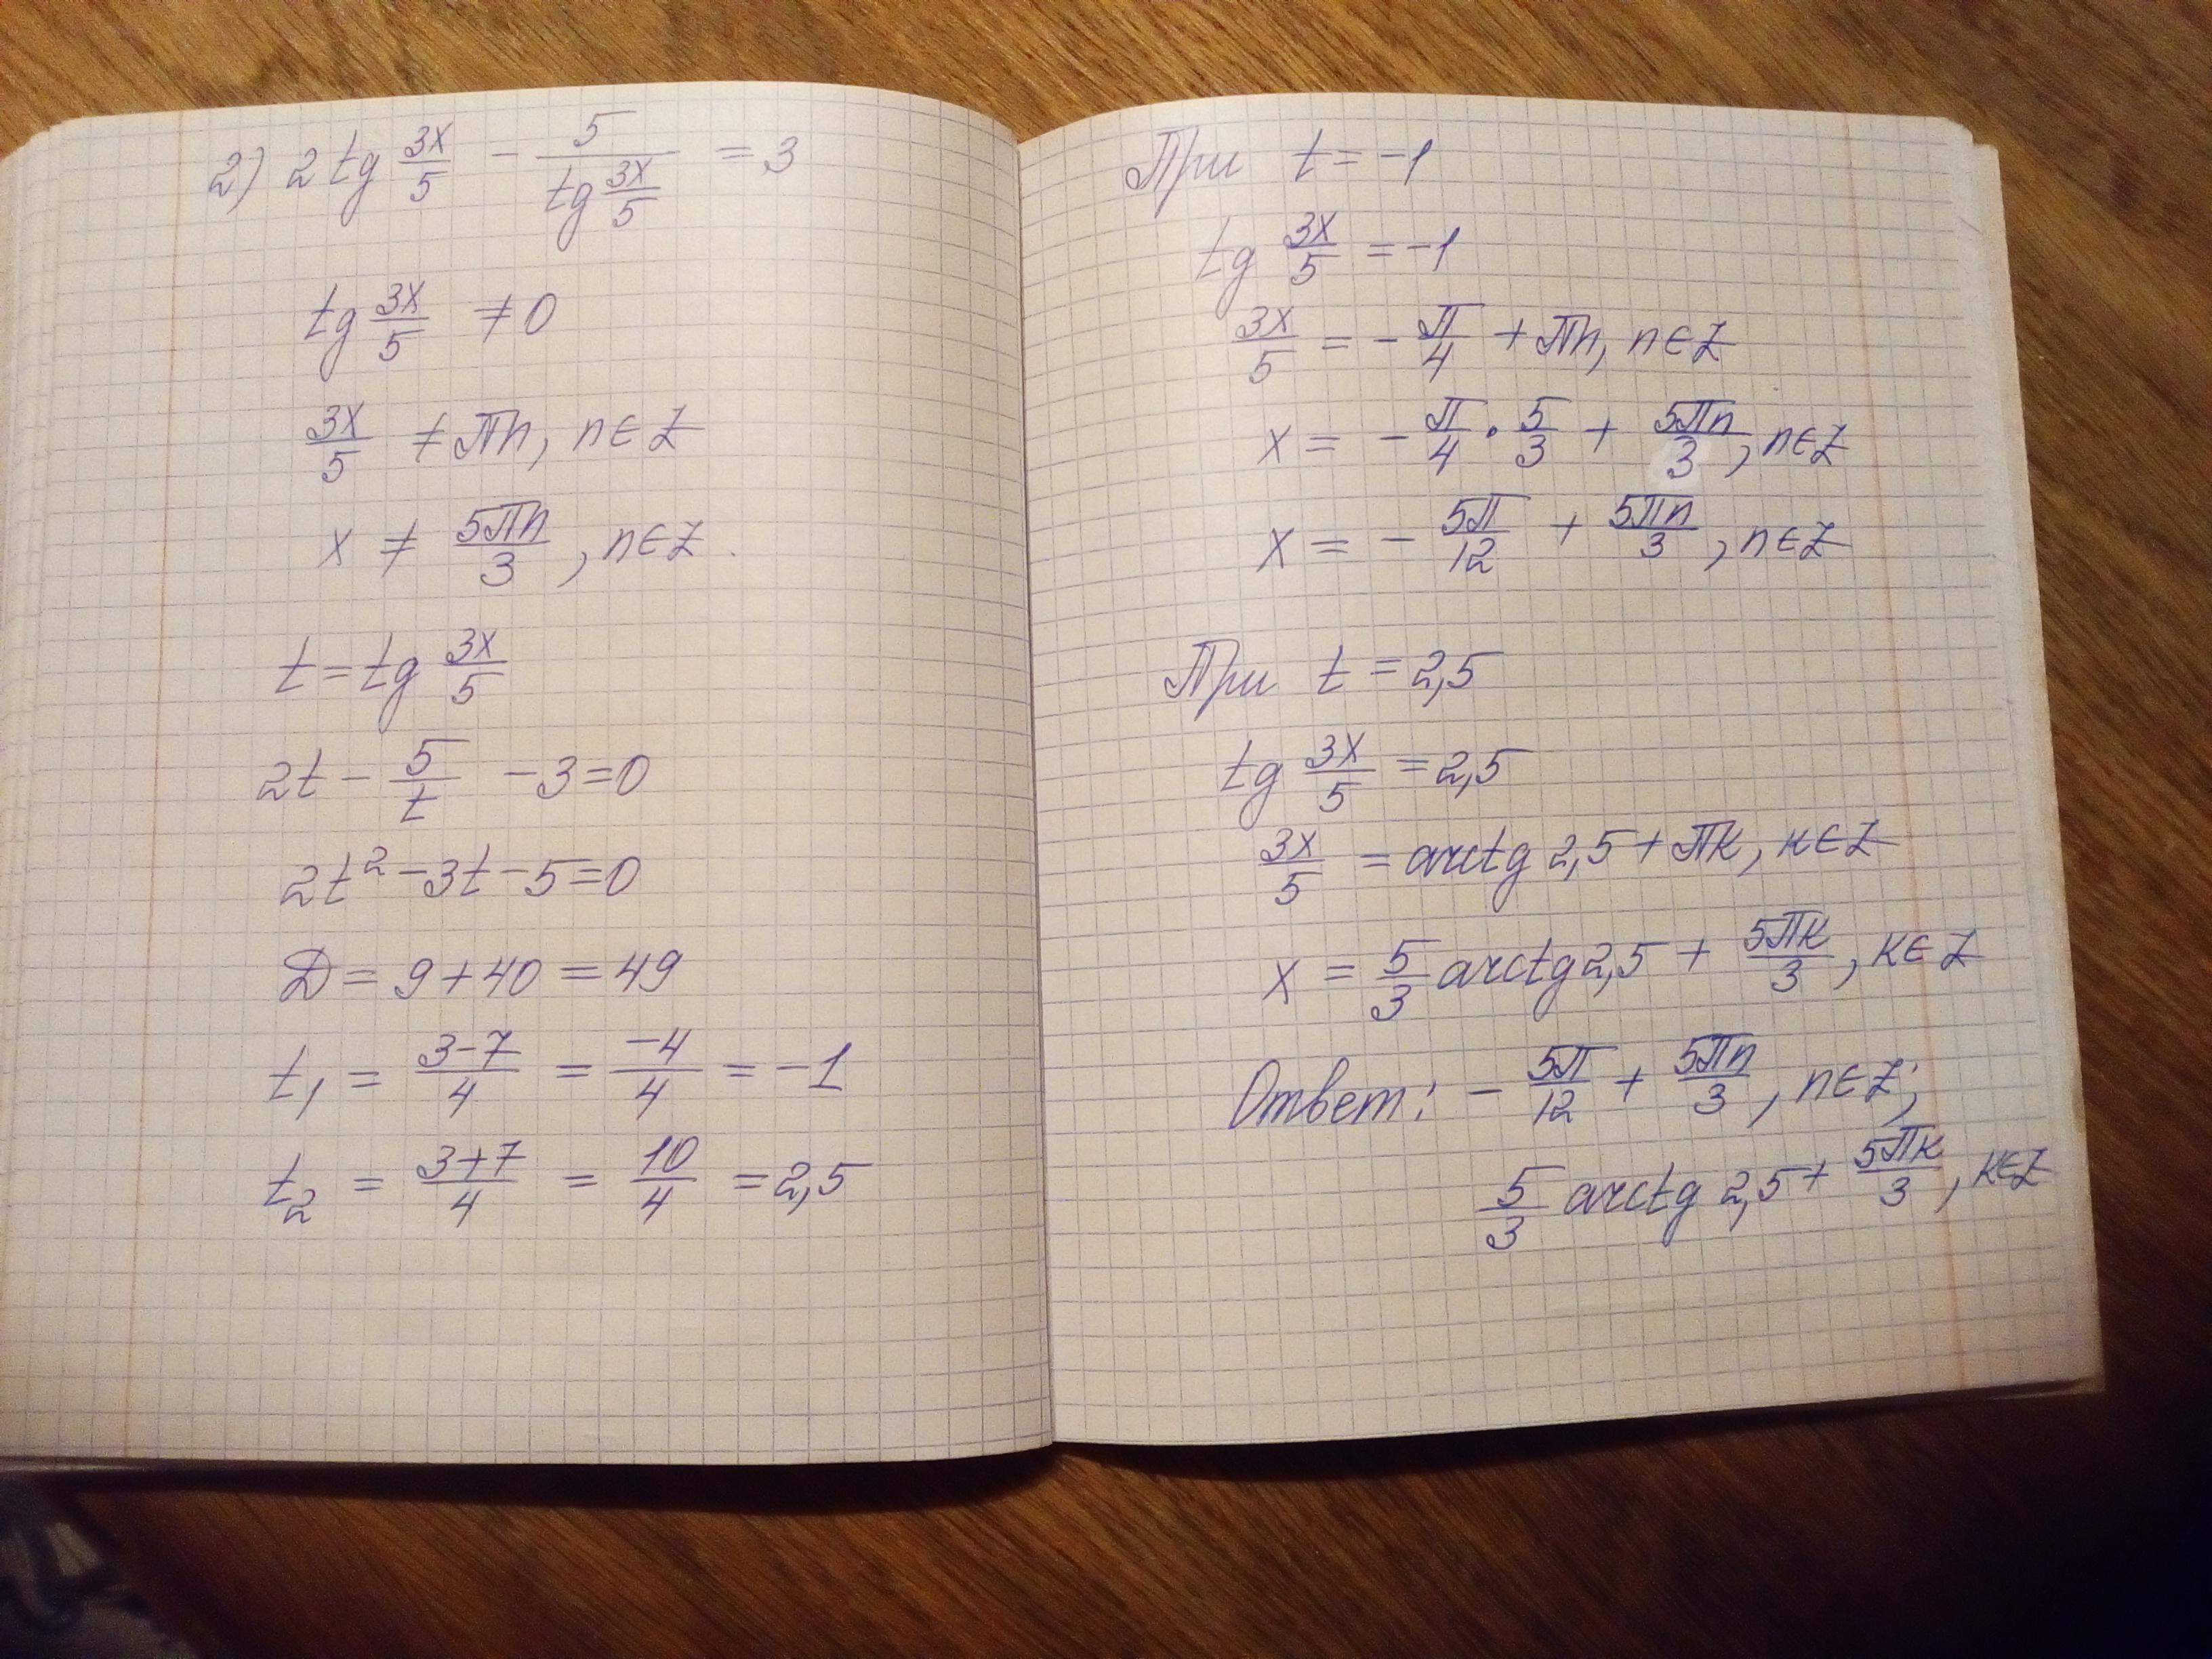 2) 2 tg 3x/5 - 5/(tg 3x/5) = 3
tg 3x/5 ≠ 0
3x/5 ≠ πn, n∈Z
x ≠ 5πn/3, n∈Z.
t = tg 3x/5
2t - 5/t - 3 = 0
2t² - 3t - 5 = 0
D = 9 + 40 = 49
t₁ = (3-7)/4 = -4/4 = -1
t₂ = (3+7)/4 = 10/4 = 2,5
При t = -1
tg 3x/5 = -1
3x/5 = - π/4 + πn, n∈Z
x = - π/4 · 5/3 + 5πn/3, n∈Z
x = - 5π/12 + 5πn/3, n∈Z
При t = 2,5
tg 3x/5 = 2,5
3x/5 = arctg 2,5 + πк, к∈Z
x = 5/3 arctg 2,5 + 5πк/3, к∈Z
Ответ: - 5π/12 + 5πn/3, n∈Z;
5/3 arctg 2,5 + 5πк/3, к∈Z